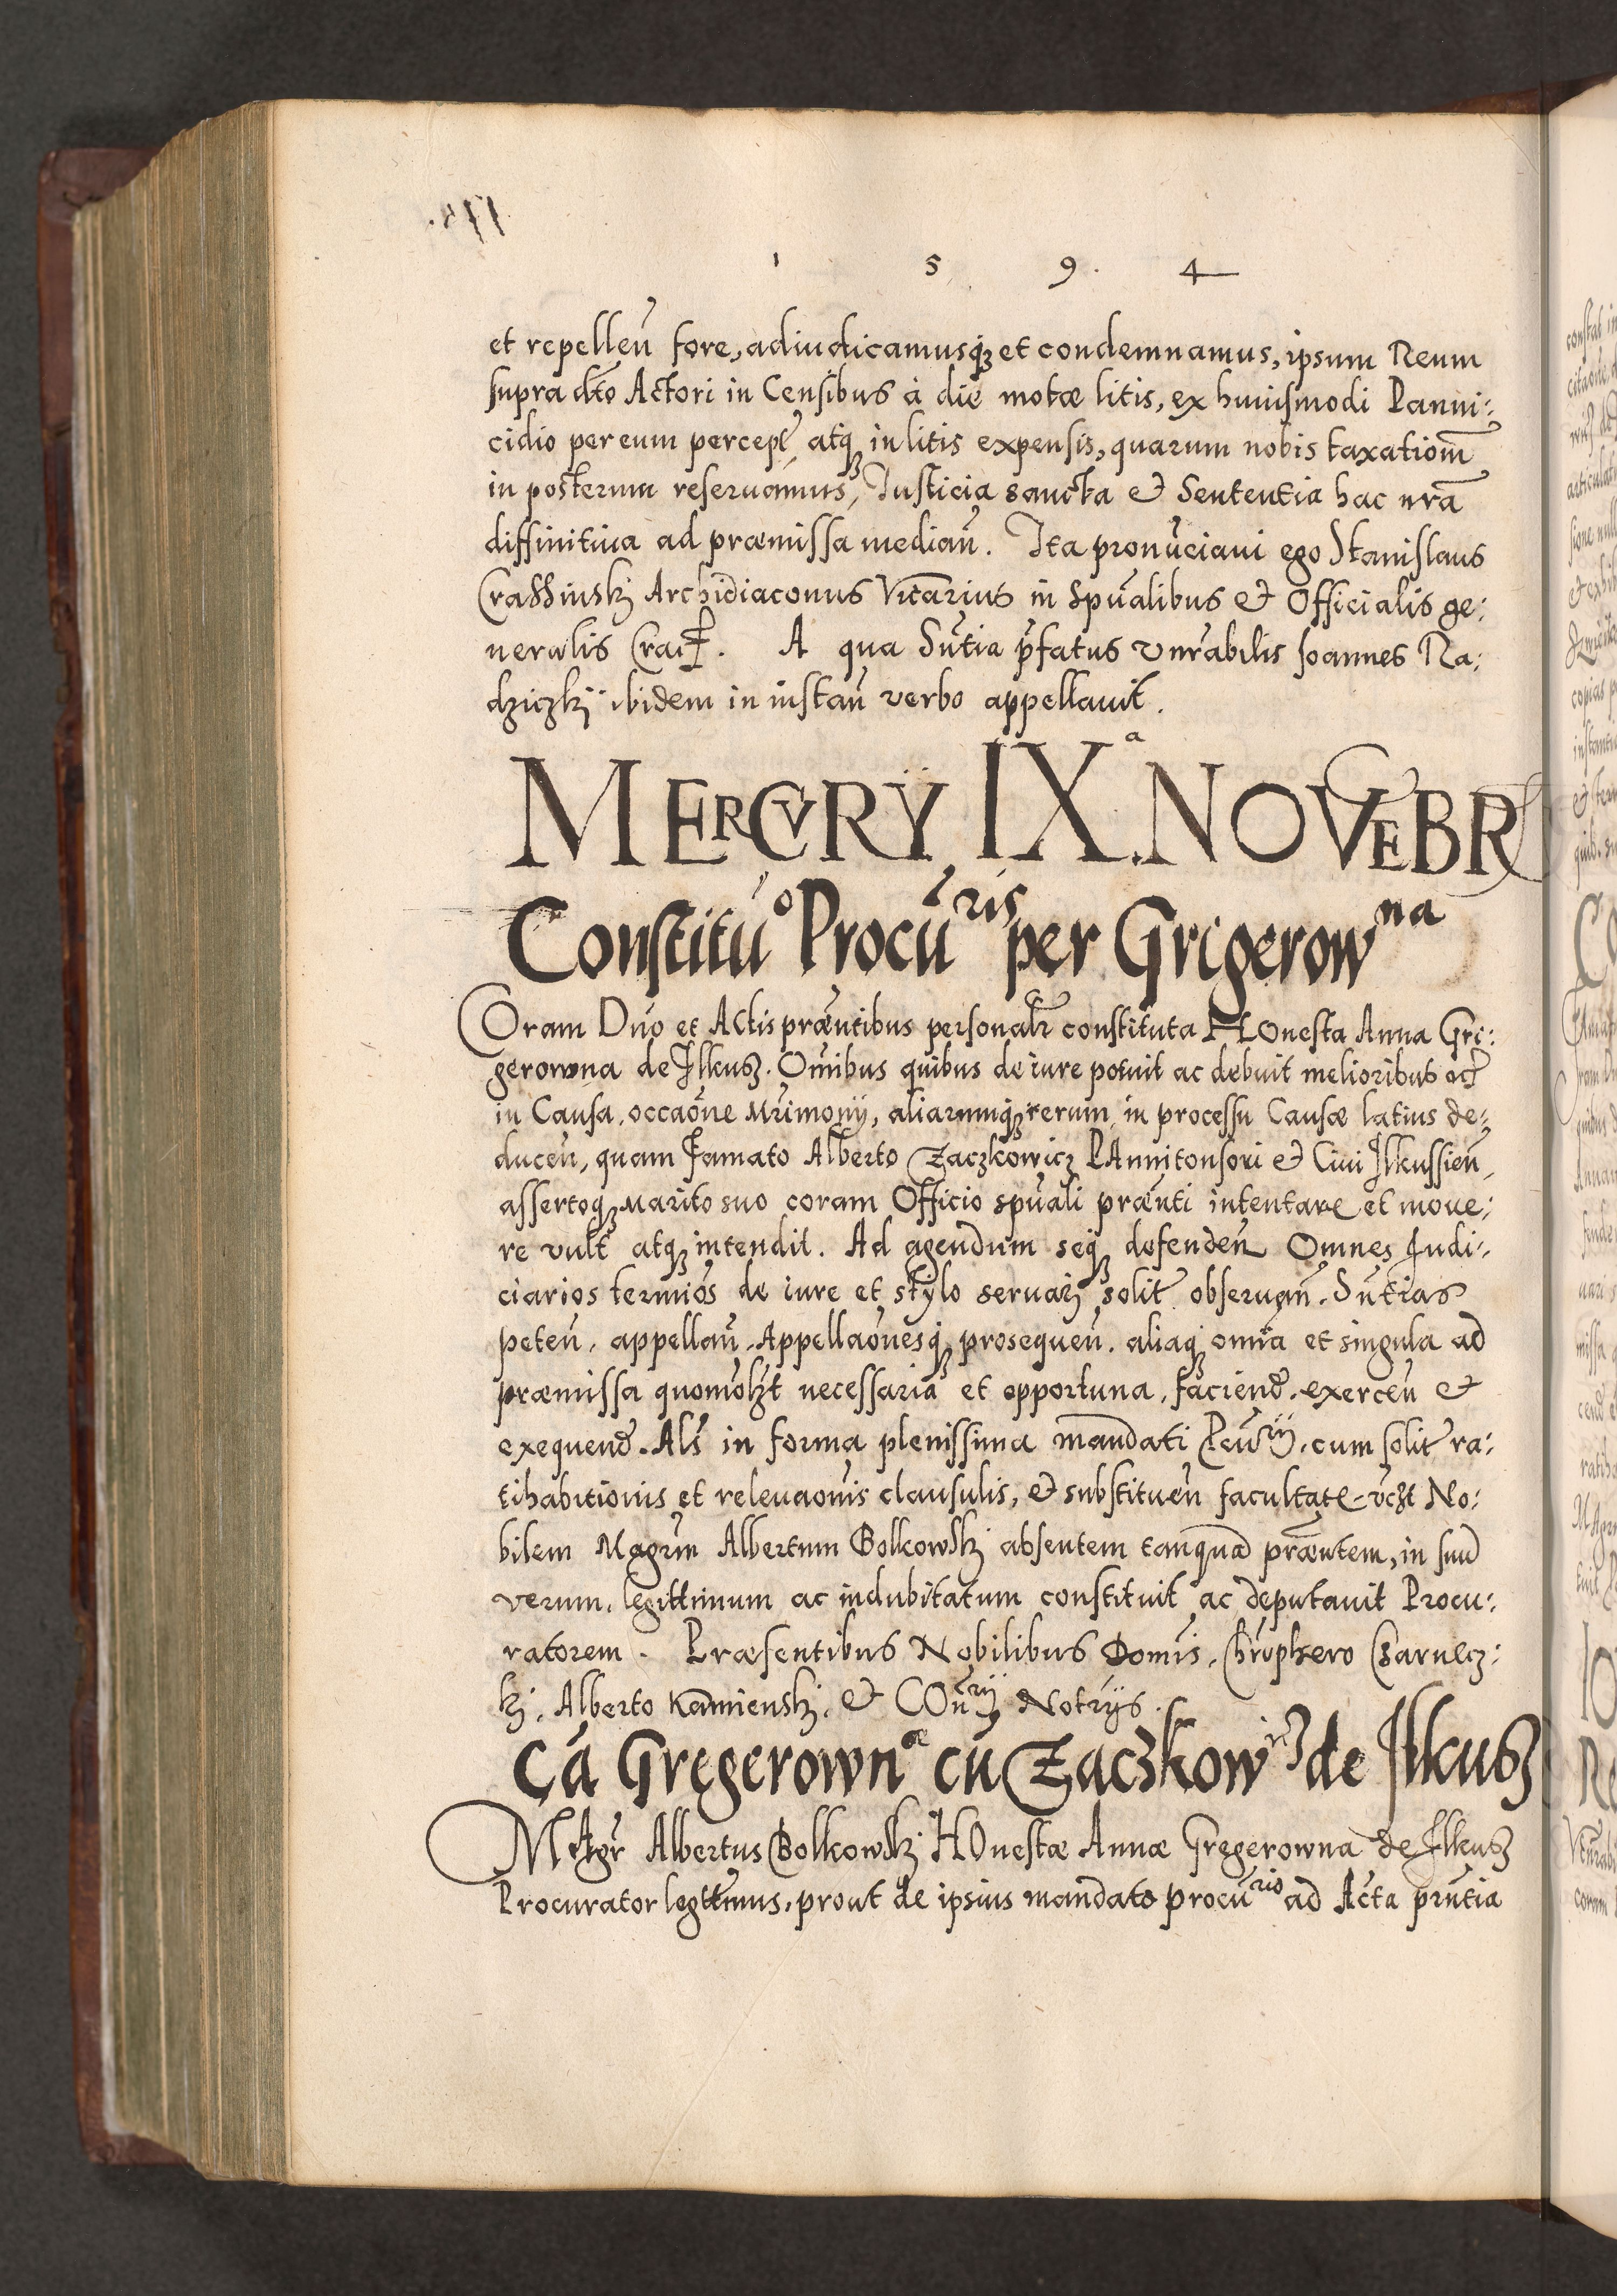 1 5 9. 4
et repelleñ fore, adiudicamusqꝫ et condemnamus, ipsum Reum
supra dc̃to Actori in Censibus à die motæ litis, ex huiusmodi Panni:
cidio per eum percept̃, atqꝫ in litis expensis, quarum nobis taxation̄
in posterum reseruamus, Iusticia sancta & Sententia hac nr̃a
diffinitiua ad præmissa median̄. Ita pronũciaui ego Stanislaus
Crassinskj Archidiaconus Vicarius in Spũalibus & Officialis ge:
neralis Crac̃. A qua Sñtia p̃fatus Vnr̃abilis Joannes Ra:
dziczkij ibidem in instañ verbo appellauit.
MERCVRŸ IXᵃ. NOVEBR
Constituᵒ Procũʳⁱˢ per Grigerowⁿᵃ
Coram Dño et Actis præñtibus personalr̃ constituta HOnesta Anna Gri:
gerowna de Ilkusz. Om̃ibus quibus de iure potuit ac debuit melioribus oc̃t
in Causa, occaõne Mr̃imonij, aliarumqꝫ rerum, in processu Causæ latius de:
duceñ, quam Famato Alberto Zaczkowicz PAnnitonsori & Ciui Ilkussieñ,
assertoqꝫ Marito suo coram Officio spũali præñti intentare et moue:
re vult atqꝫ intendit. Ad agendum seqꝫ defendeñ Omnes Iudi:
ciarios termĩos de iure et stylo seruarj solit̃ obseruañ. Sñtias
peteñ, appellañ, Appellaõnesqꝫ prosequeñ, aliaqꝫ om̃ia et singula ad
præmissa quomolꝫt necessaria et opportuna, faciend̃, exerceñ &
exequend̃. Als̃ in forma plenissima mandati Pcũʳⁱʲ, cum solit̃ ra:
tihabitionis et releuaõnis clausulis, & substitueñ facultate vcꝫt No:
bilem Magr̃m Albertum Bolkowskj absentem tanquã præñtem, in suũ
verum, legittimum ac indubitatum constituit ac deputauit Procu:
ratorem. Præsentibus Nobilibus Domĩs, Chrõphero Czarnecz:
kj, Alberto Kamienskj, & COñʳⁱʲ Notrijs.
Cã Gregerownᵃ cũ Zaczkowⁱᶜᶻ de Ilkusz
MAgr̃ Albertus Bolkowskj HOnestæ Annæ Gregerowna de Ilkusz
Procurator legttimus, prout de ipsius mandato procũʳⁱᵒ ad Acta pr̃ntia